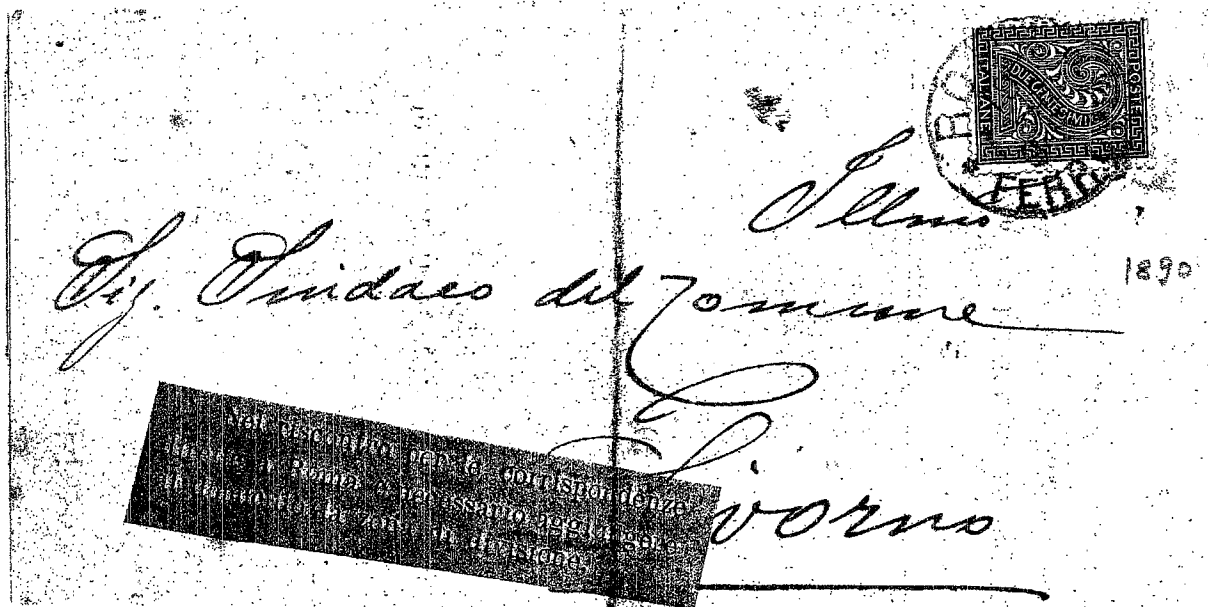 POSTE ITALIANE
DUE CENTESIMI
RO
FERR
Illmo
1890
Sig. Sindaco del Comune
Livorno
Nel riscontro per le corrispondenze
a Roma, è necessario aggiungere
di divisione.